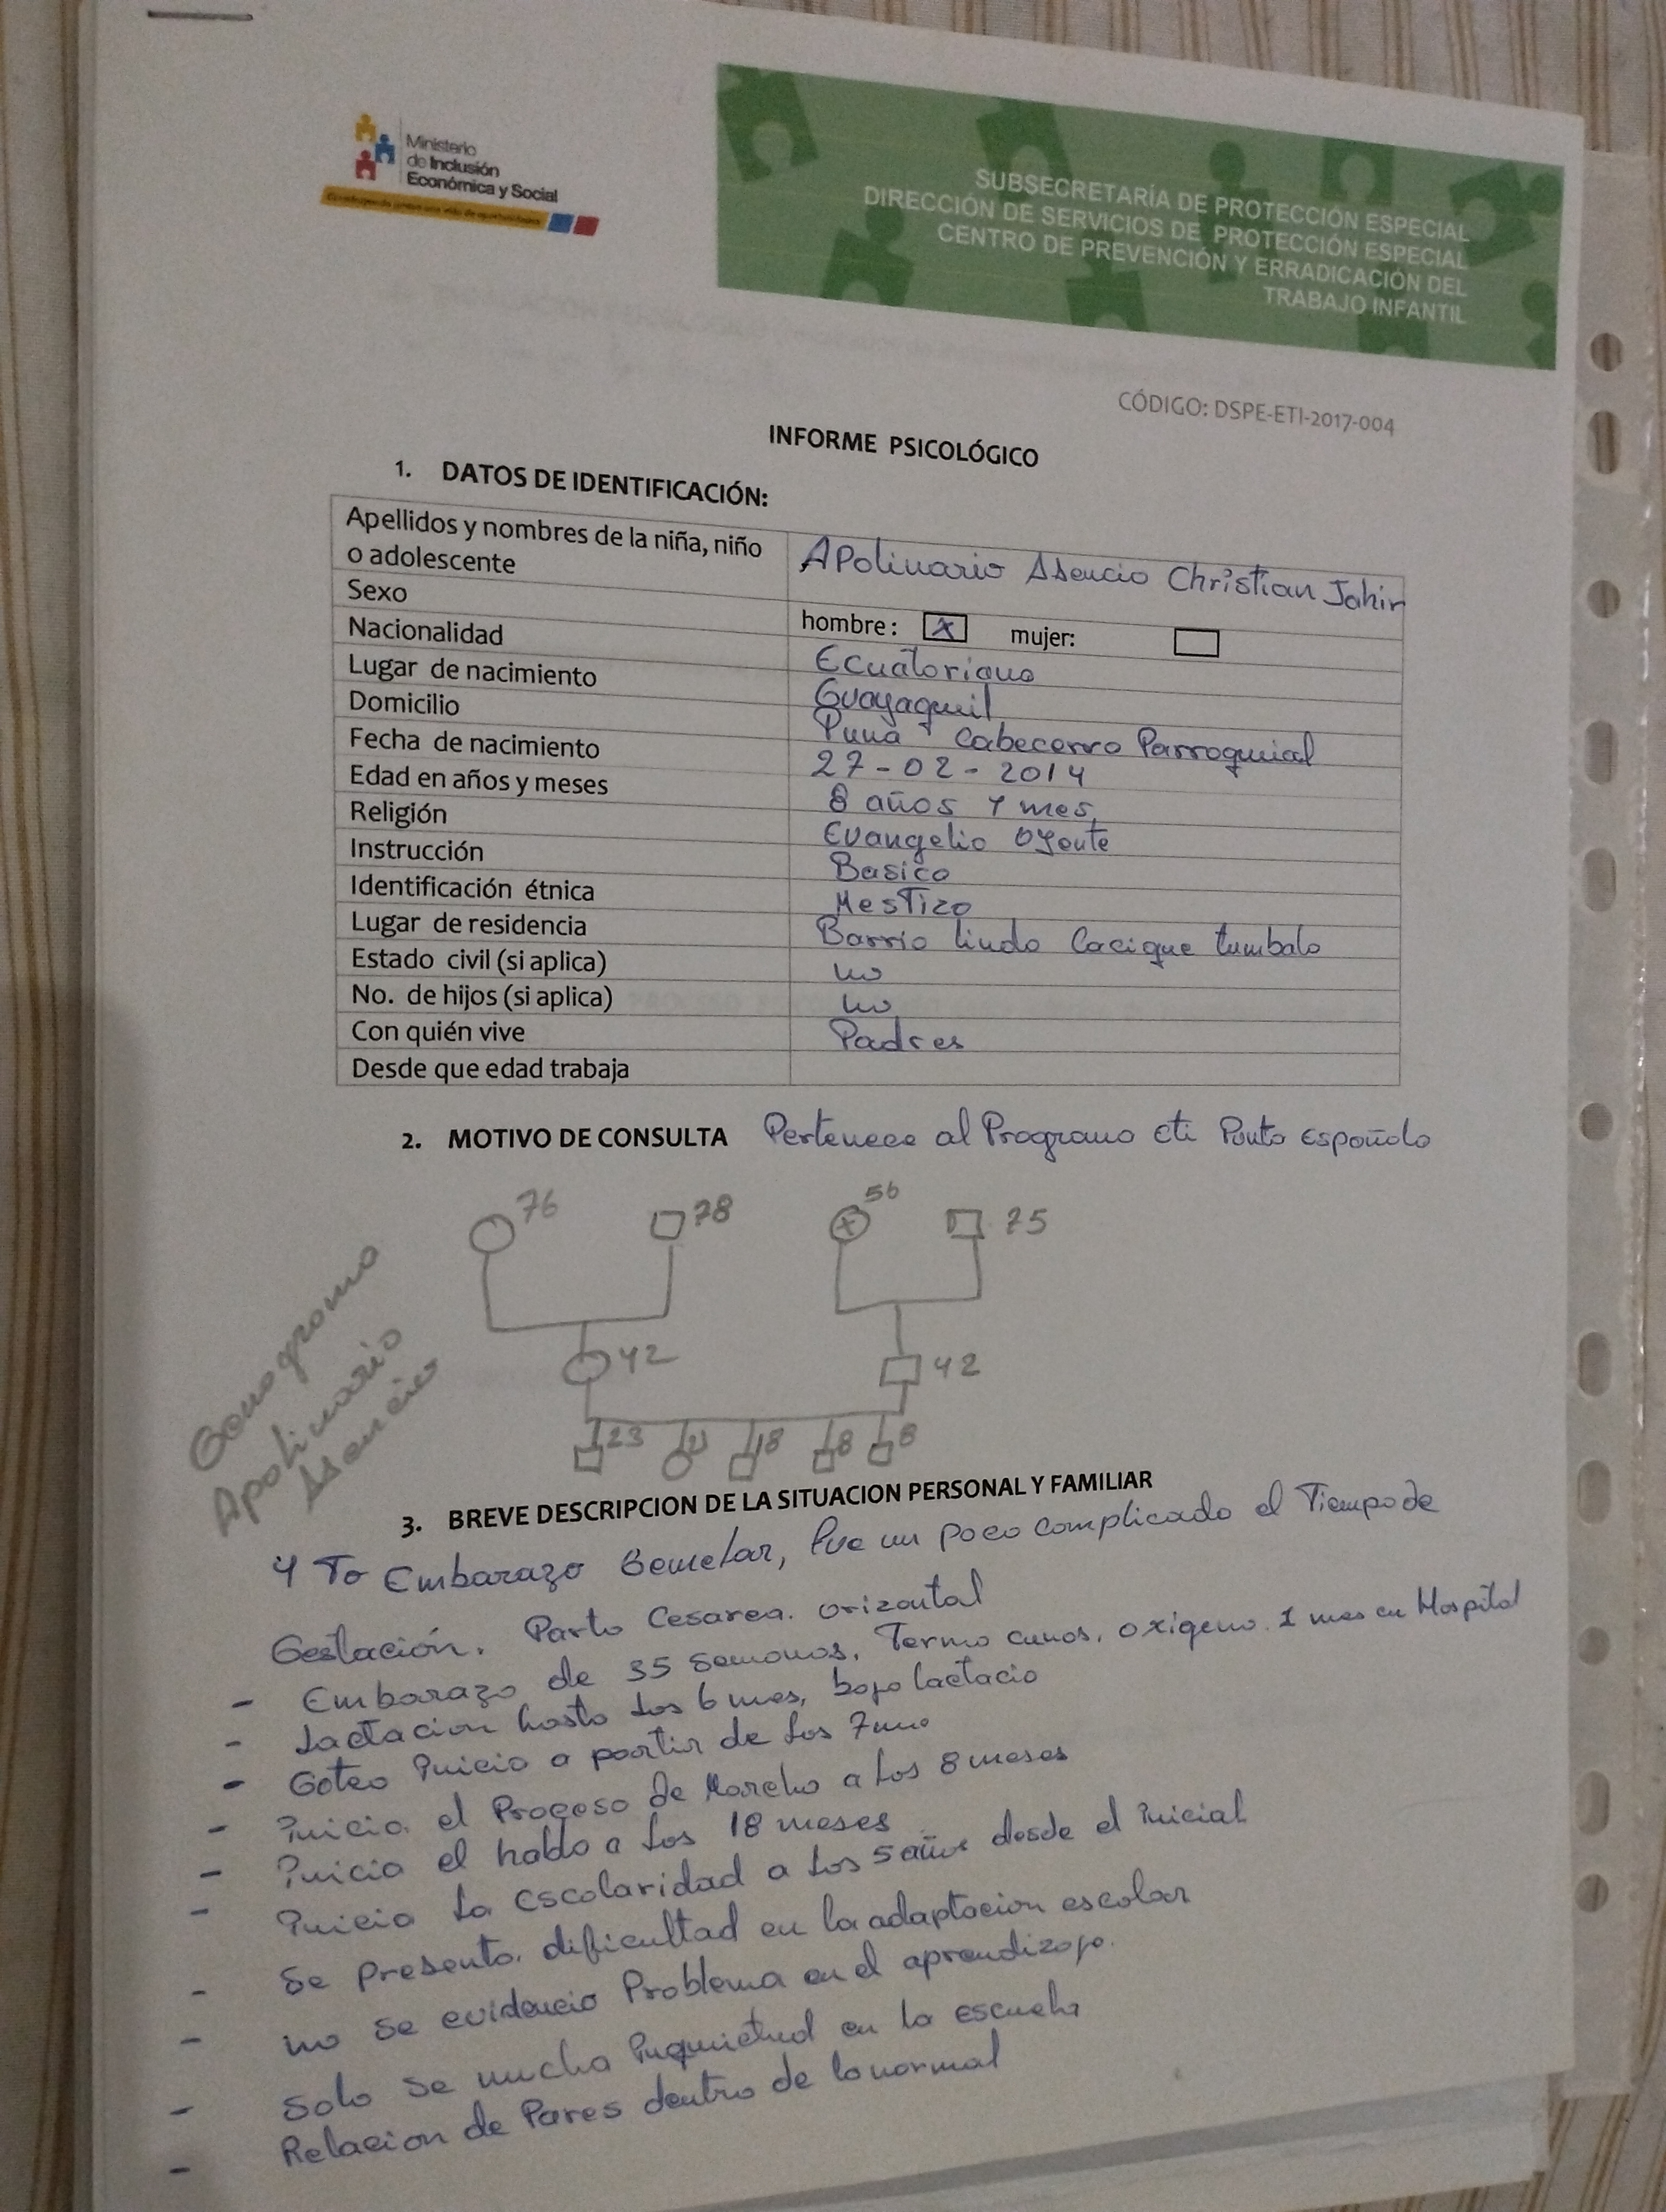 Ministerio
de Inclusión
Económica y Social
SUBSECRETARÍA DE PROTECCIÓN ESPECIAL
DIRECCIÓN DE SERVICIOS DE PROTECCIÓN ESPECIAL
CENTRO DE PREVENCIÓN Y ERRADICACIÓN DEL
TRABAJO INFANTIL
CÓDIGO: DSPE-ETI-2017-004
INFORME PSICOLÓGICO
1. DATOS DE IDENTIFICACIÓN:
Apellidos y nombres de la niña, niño
o adolescente
Apolinario Asencio Christian Jahir
Sexo
hombre: x mujer:
Nacionalidad
Ecuatoriano
Lugar de nacimiento
Guayaquil
Domicilio
Puná Cabecerro Parroquial
Fecha de nacimiento
27-02-2014
Edad en años y meses
8 años 1 mes,
Religión
Evangelio oyente
Instrucción
Basico
Identificación étnica
Mestizo
Lugar de residencia
Barrio lindo Cacique tumbalo
Estado civil (si aplica)
no
No. de hijos (si aplica)
no
Con quién vive
Padres
Desde que edad trabaja
2. MOTIVO DE CONSULTA Pertenece al Programo eti Punto Española
76 78 56 75
Genogramo
Apolinario
Asencio
42 42
23 18 8 8
3. BREVE DESCRIPCION DE LA SITUACION PERSONAL Y FAMILIAR
4 To Embarazo Gemelar, fue un poco complicado el Tiempo de
Gestación. Parto Cesarea. orizontal
- Embarazo de 35 semanas, Termo cunas, oxigeno. 1 mes en Hospital
- Lactacion hasta los 6 mes, bajo lactacio
- Gateo inicio a partir de los 7
- inicio el Proceso de Marcha a los 8 meses
- inicio el hablo a los 18 meses
- inicio la escolaridad a los 5 años desde el inicial
- Se presento dificultad en la adaptacion escolar
- no se evidencio Problema en el aprendizaje.
- solo se mucha inquietud en la escuela
- Relacion de Pares dentro de lo normal